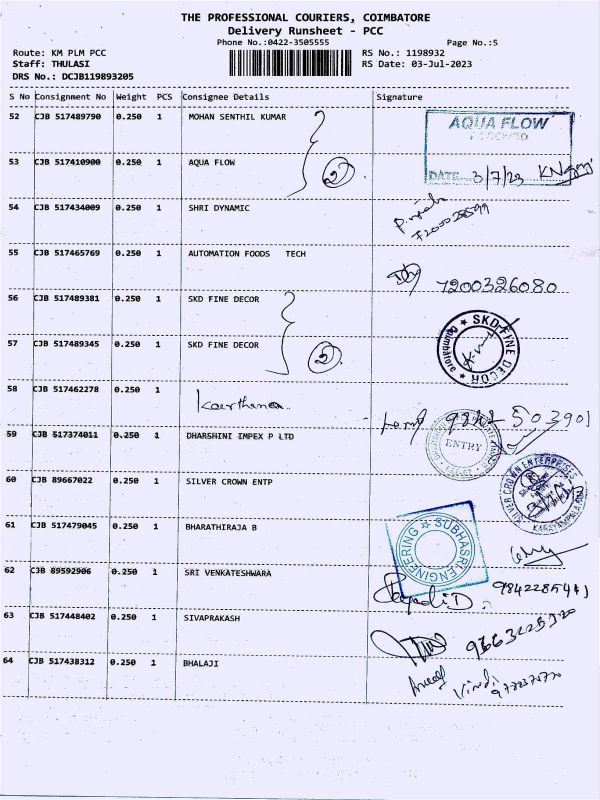 THE PROFESSIONAL COURIERS, COIMBATORE
Delivery Runsheet - PCC
Phone No.:0422-3505555 Page No.:5
Route: KM PLM PCC RS No.: 1198932
Staff: THULASI RS Date: 03-Jul-2023
DRS No.: DCJB119893205
S No Consignment No Weight PCS Consignee Details Signature
52 CJB 517489790 0.250 1 MOHAN SENTHIL KUMAR
AQUA FLOW
53 CJB 517410900 0.250 1 AQUA FLOW
2
DATE 3/7/23
54 CJB 517434009 0.250 1 SHRI DYNAMIC
55 CJB 517465769 0.250 1 AUTOMATION FOODS TECH
7200326080
56 CJB 517489381 0.250 1 SKD FINE DECOR
SKD FINE DECOR
Coimbatore
57 CJB 517489345 0.250 1 SKD FINE DECOR
2
58 CJB 517462278 0.250 1
59 CJB 517374011 0.250 1 DHARSHINI IMPEX P LTD
ENTRY
60 CJB 89667022 0.250 1 SILVER CROWN ENTP
SILVER CROWN ENTERPRISES
61 CJB 517479045 0.250 1 BHARATHIRAJA B
SUBHASRI ENGINEERING
62 CJB 89592906 0.250 1 SRI VENKATESHWARA
63 CJB 517448402 0.250 1 SIVAPRAKASH
64 CJB 517438312 0.250 1 BHALAJI